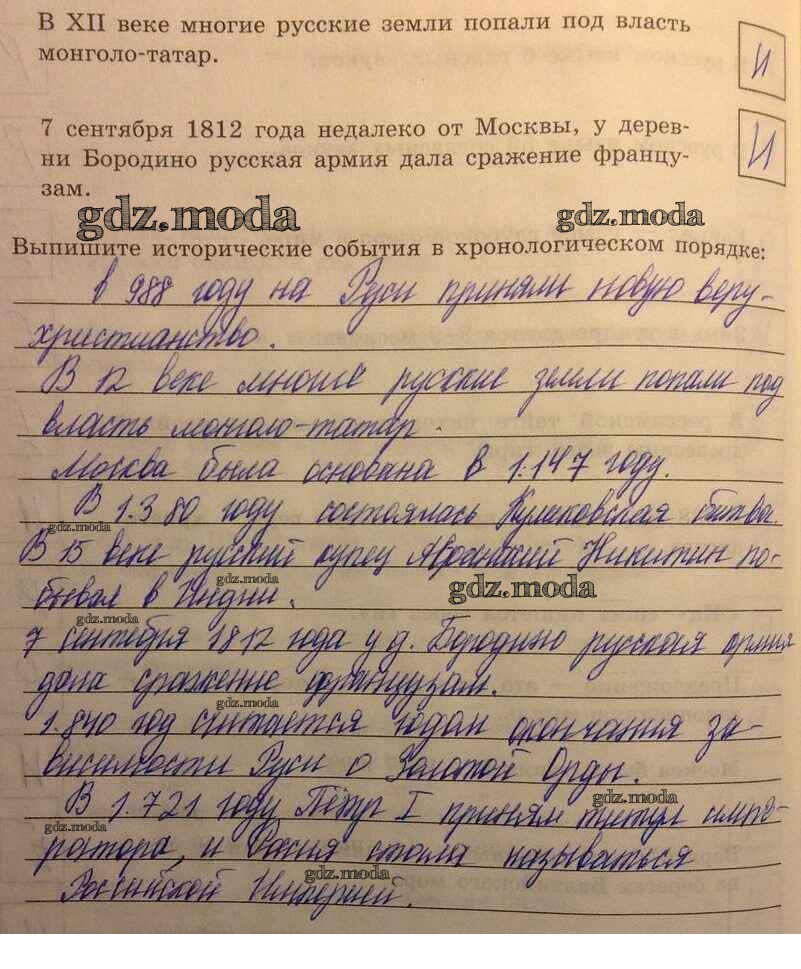 В XII веке многие русские земли попали под власть
монголо-татар.
И
7 сентября 1812 года недалеко от Москвы, у дерев-
ни Бородино русская армия дала сражение францу-
зам.
И
gdz.moda
gdz.moda
Выпишите исторические события в хронологическом порядке:
в 988 году на Руси приняли новую веру-
христианство.
В 12 веке многие русские земли попали под
власть монголо-татар.
Москва была основана в 1.147 году.
В 1.380 году состоялась Куликовская битва.
gdz.moda
В 15 веке русский купец Афанасий Никитин по-
gdz.moda
бывал в Индии.
gdz.moda
gdz.moda
7 сентября 1812 года у д. Бородино русская армия
gdz.moda
дала сражение французам.
gdz.moda
1.840 год считается годом окончания за-
висимости Руси о Золотой Орды.
gdz.moda
В 1.721 году Пётр I принял титул импе-
gdz.moda
ратора, и Россия стала называться
gdz.moda
Российской Империей.